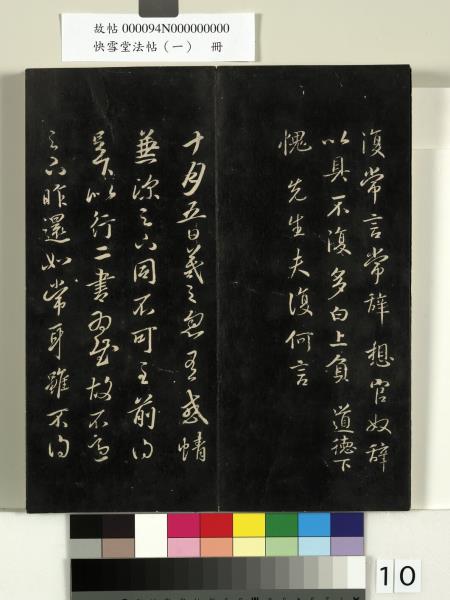 故帖 000094N000000000
快雪堂法帖（一） 冊
復常言常辞想官奴辞
以具不復多白上負 道德下
愧 先生夫復何言
十月五日羲之
同不可言前
行二書 故不
昨還如常耳雖不
10